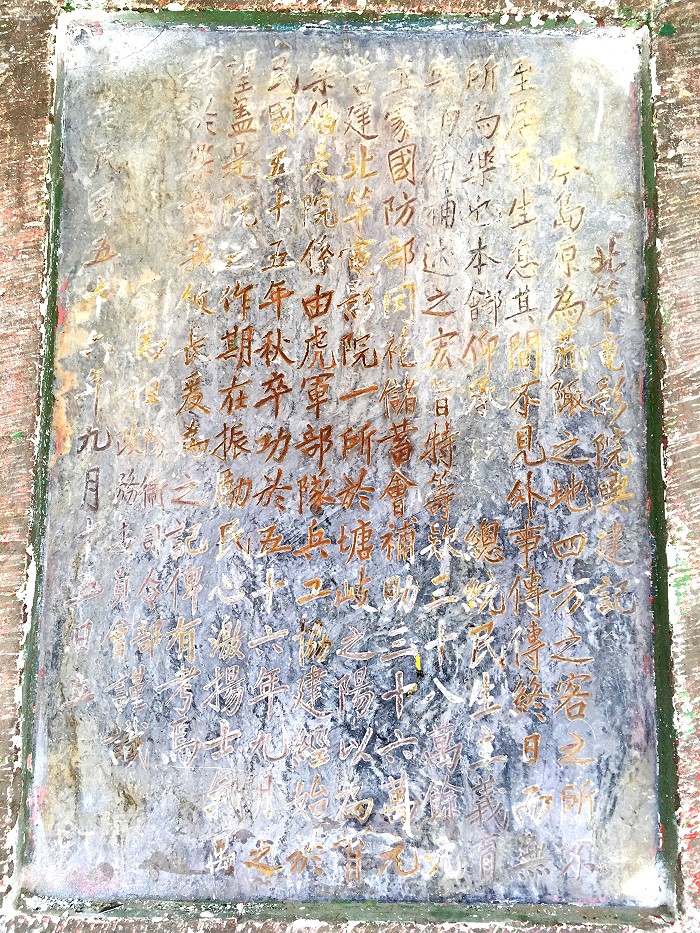 北竿電影院興建記
本島原為荒陬之地四方之客之所不
至居民生息其間不見外事傳傳終日而無
所為樂也本部仰承 總統民生主義育
樂兩篇補述之宏旨特籌欵三十八萬餘元
並蒙國防部同袍儲蓄會補助三十六萬元
營建北竿電影院一所於塘岐之陽以為育
樂偕是院係由虎軍部隊兵工協建經始於
民國五十五年秋卒功於五十六年九月之
望蓋是院之作期在振勵民心激揚士氣
於樂 長爰為之記俾有考焉
馬祖防衛司令部
政務委員會謹誌
民國五十六年九月十五日立